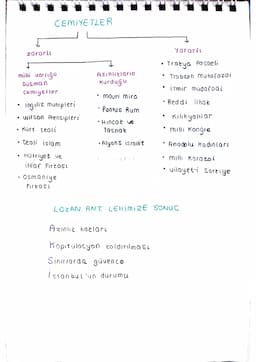 CEMİYETLER
zararlı
Yararlı
milli varlığa
Düşman
Cemiyetler
• ingiliz muhipleri
• wilson Prensipleri
• Kürt teali
• teali islam
• Hürriyet ve
itilaf Fırkası
• osmaniye
Fırkası
Azınlıkların
Kurduğu
• mavri mira
• Pontus Rum
• Hıncak ve
Taşnak
• Alyans israilit
• Trakya Paşaeli
• Trabzon muhafazai
• izmir mudafadi
• Reddi ilhak
• Kilikyalılar
• Milli Kongre
• Anadolu Kadınları
• milli Karakol
• vilayet-i Şarkiye
LOZAN ANT. LEHİMİZE SONUÇ
Azınlık hakları
Kapitülasyon kaldırılması
Sınırlarda güvence
İstanbul'un durumu